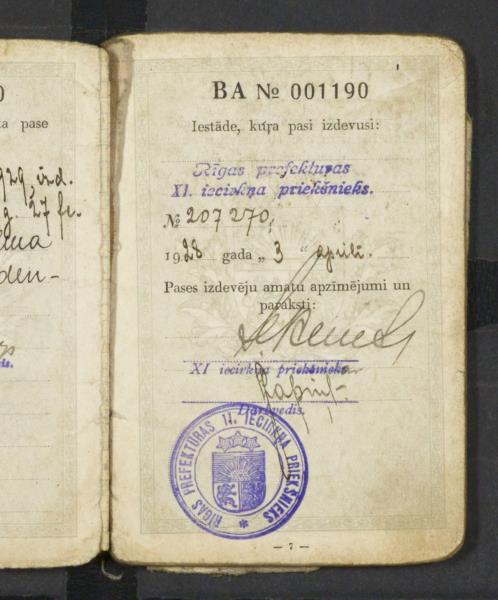 0
a pase
1929. izd.
g. 27 fe
den-
is.
BA № 001190
Iestāde, kuŗa pasi izdevusi:
Rīgas prefektūras
XI. iecirkņa priekšnieks.
№ 207270,
1928 gada „ 3 “ aprīlī.
Pases izdevēju amatu apzīmējumi un
paraksti:
XI iecirkņa priekšnieka
Darbvedis.
RĪGAS PREFEKTŪRAS 11. IECIRKŅA PRIEKŠNIEKS
— 7 —